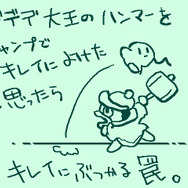 デデデ大王のハンマーを
ャンプで
キレイによけた
思ったら
キレイにぶつかる罠。